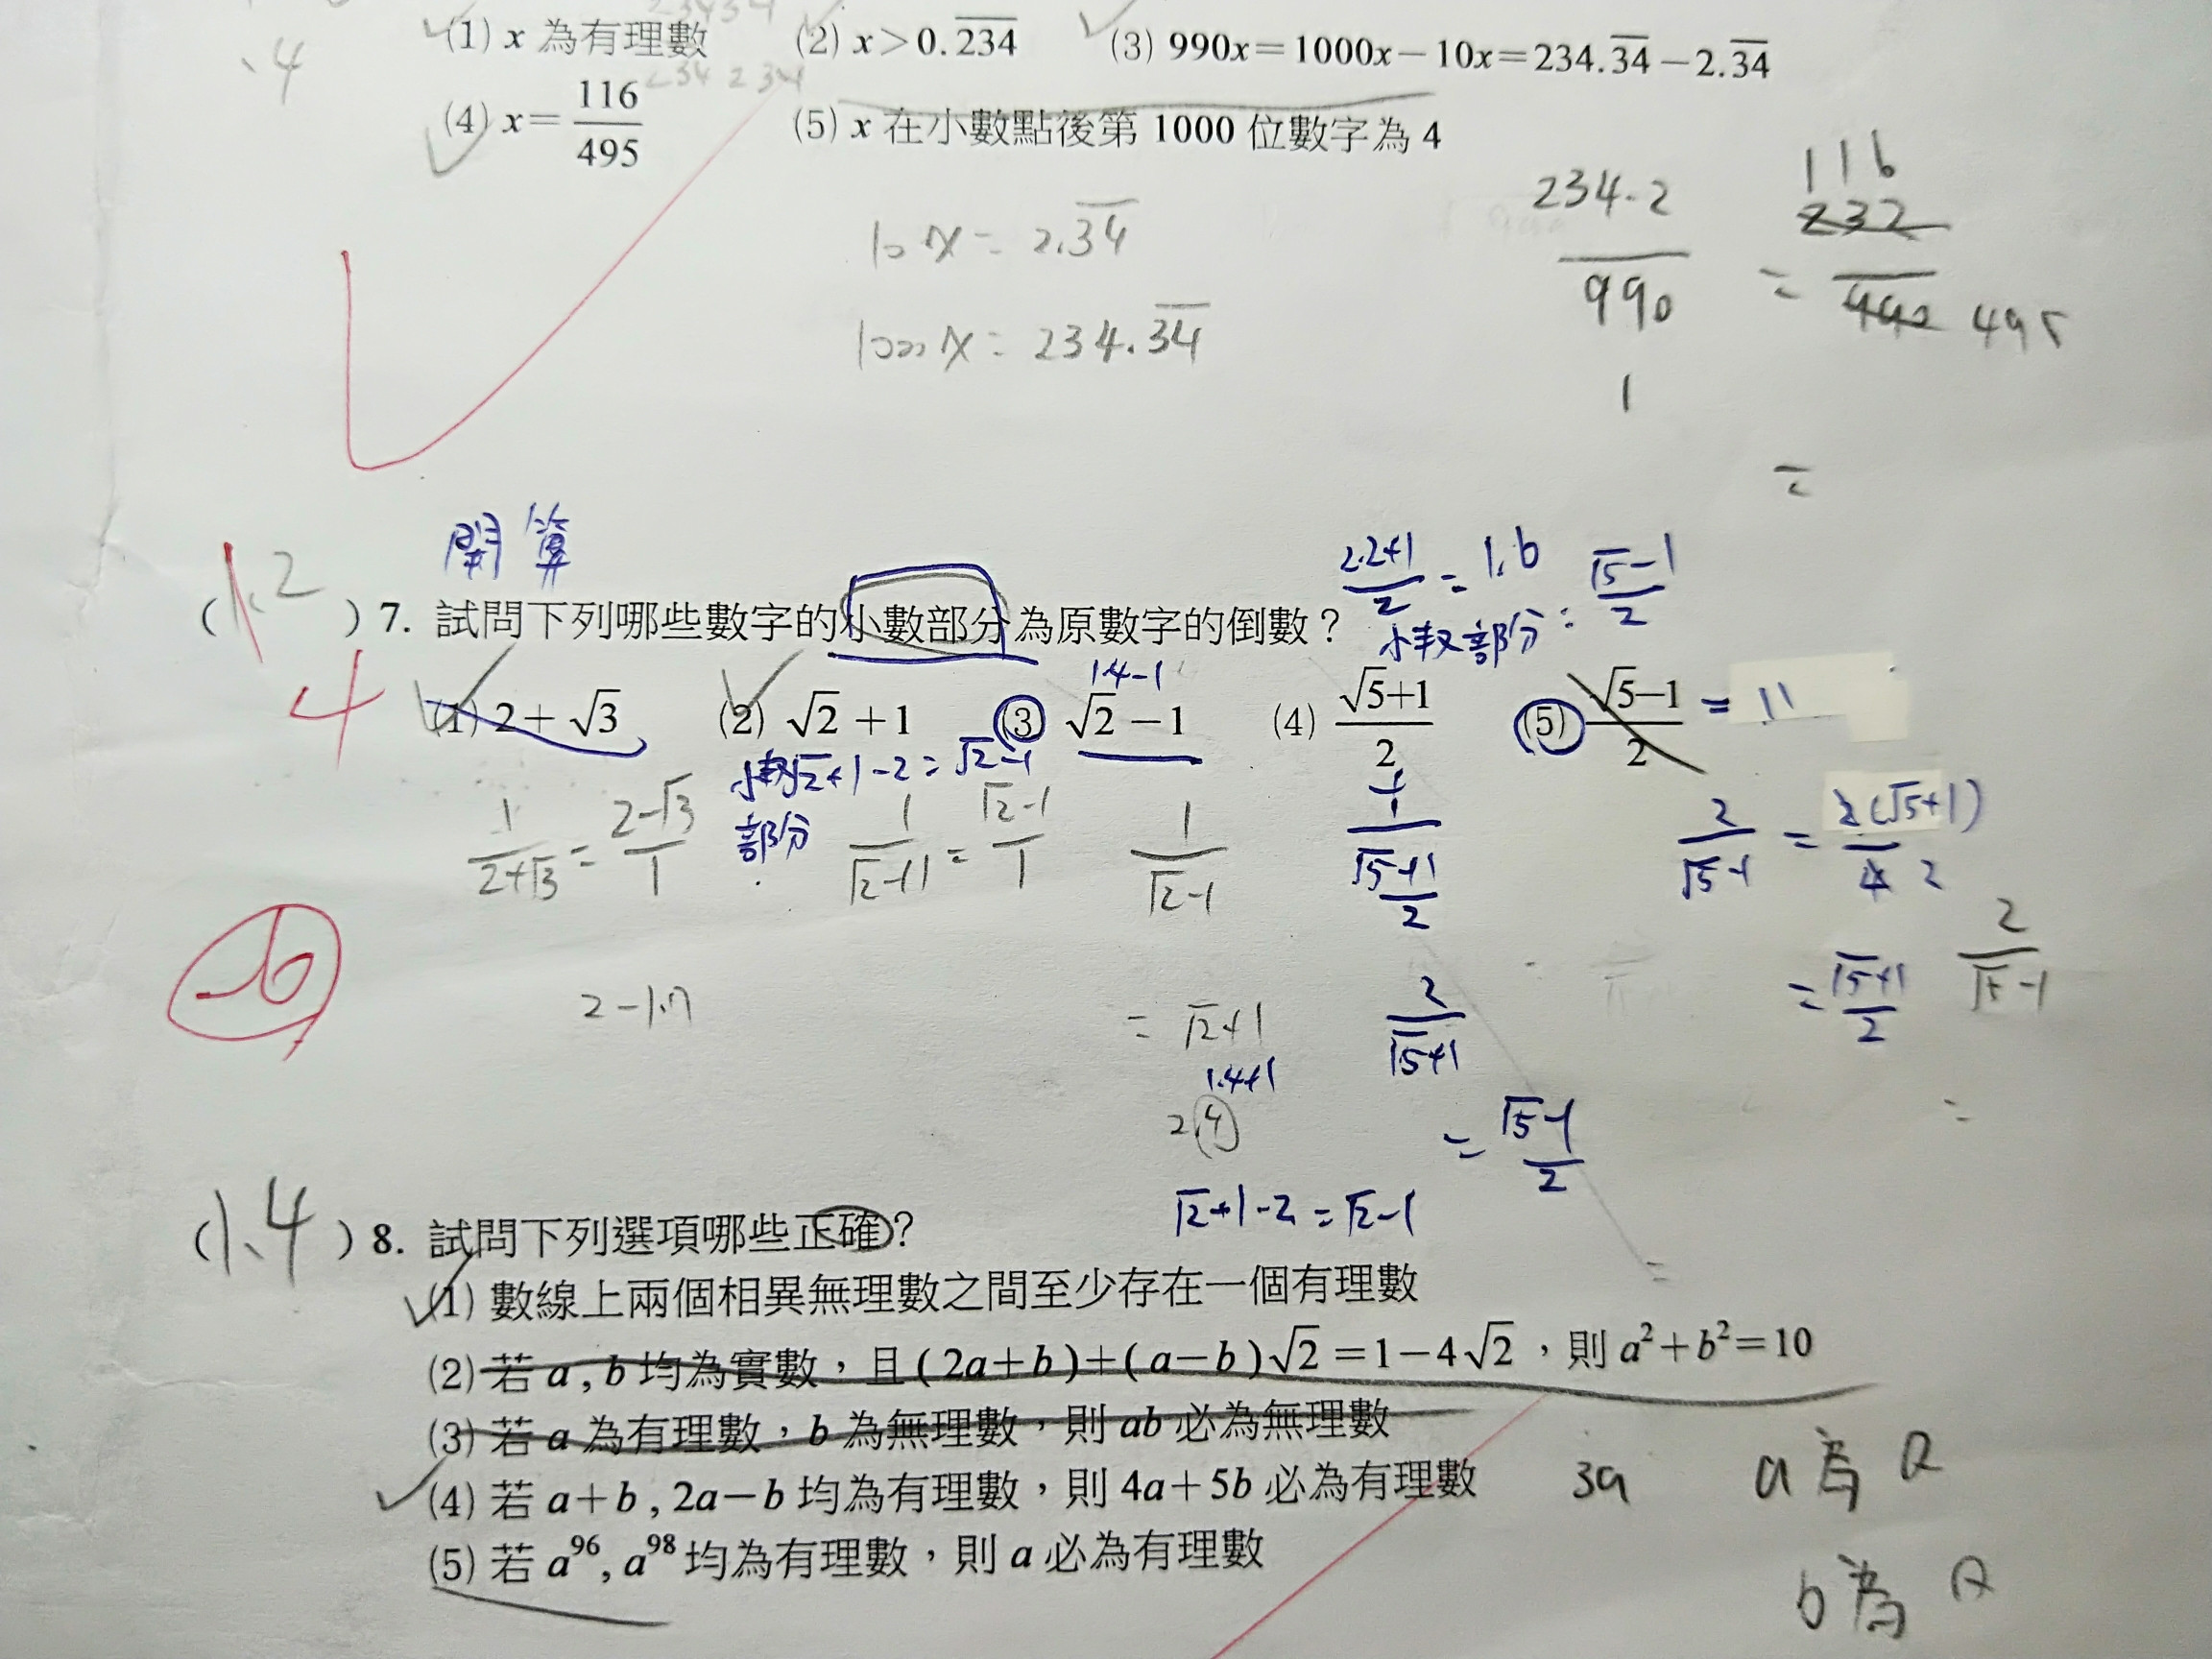 (1) x 為有理數 (2) x>0.\overline{234} (3) 990x=1000x-10x=234.\overline{34}-2.\overline{34}
、4
(4) x=116/495 (5) x 在小數點後第 1000 位數字為 4
10x = 2.\overline{34}
1000x = 234.\overline{34}
234-2/990 = 232/990 116 495
1
=
開算
2.2+1/2 = 1.6 √5-1/2
小數部分:
(1、2) 7. 試問下列哪些數字的小數部分為原數字的倒數?
4
1.4-1
(1) 2+√3 (2) √2+1 (3) √2-1 (4) √5+1/2 (5) √5-1/2 =
小數 √2+1-2=√2-1
部分
1/2+√3 = 2-√3/1
1/√2+1 = √2-1/1
1/√2-1
= √2+1
1.4+1
2.4
√2+1-2=√2-1
1/(√5+1/2)
2/√5+1
= √5-1/2
2/√5-1 = 2(√5+1)/4 2
= √5+1/2
2/√5-1
-6
2-1.7
(1、4) 8. 試問下列選項哪些正確?
(1) 數線上兩個相異無理數之間至少存在一個有理數
(2) 若 a , b 均為實數,且 ( 2a+b )+( a-b )√2=1-4√2,則 a²+b²=10
(3) 若 a 為有理數,b 為無理數,則 ab 必為無理數
(4) 若 a+b , 2a-b 均為有理數,則 4a+5b 必為有理數
3a a為Q
(5) 若 a⁹⁶, a⁹⁸ 均為有理數,則 a 必為有理數
b為Q